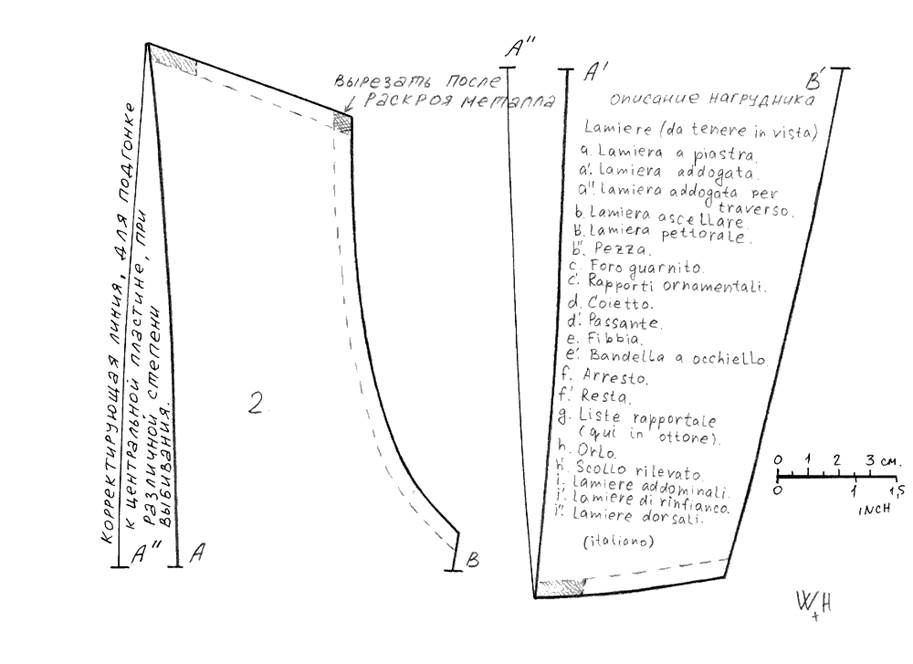 Корректирующая линия, для подгонке
к центральной пластине, при
различной степени
выбивания.
A" A
2
B
вырезать после
раскроя металла
A" A' B'
описание нагрудника
Lamiere (da tenere in vista)
a. Lamiera a piastra.
a'. Lamiera addogata.
a" Lamiera addogata per
traverso.
b. Lamiera ascellare.
b. Lamiera pettorale.
b". Pezza.
c. Foro guarnito.
c'. Rapporti ornamentali.
d. Coietto.
d'. Passante.
e. Fibbia.
e'. Bandella a occhiello
f. Arresto.
f'. Resta.
g. Liste rapportale
(qui in ottone).
h. Orlo.
h'. Scollo rilevato.
i. Lamiere addominali.
i'. Lamiere di rinfianco.
i". Lamiere dorsali.
(italiano)
0 1 2 3 см.
0 1 1,5
INCH
W+H